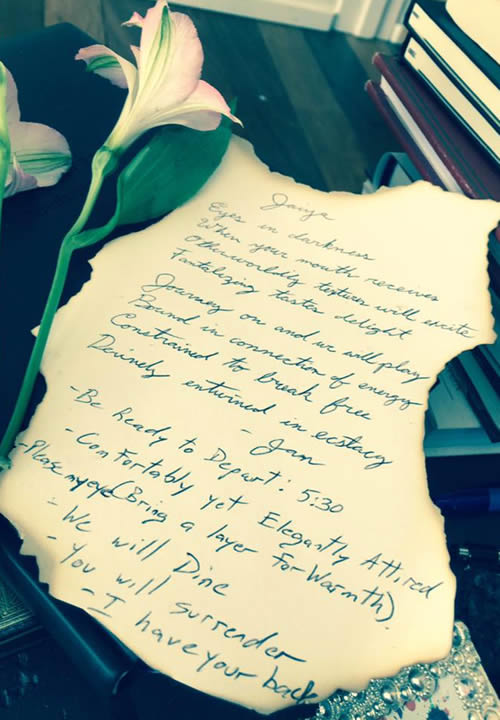 Jaiya
Eyes in darkness
When your mouth receives
Otherworldly textures will excite
Tantalizing tastes delight
Journey on and we will play
Bound in connection of energy
Constrained to break free
Divinely entwined in ecstacy
- Jan
- Be Ready to Depart: 5:30
- Comfortably yet Elegantly Attired
- Please my eye (Bring a layer For Warmth).
- We will Dine
- You will surrender
- I have your back